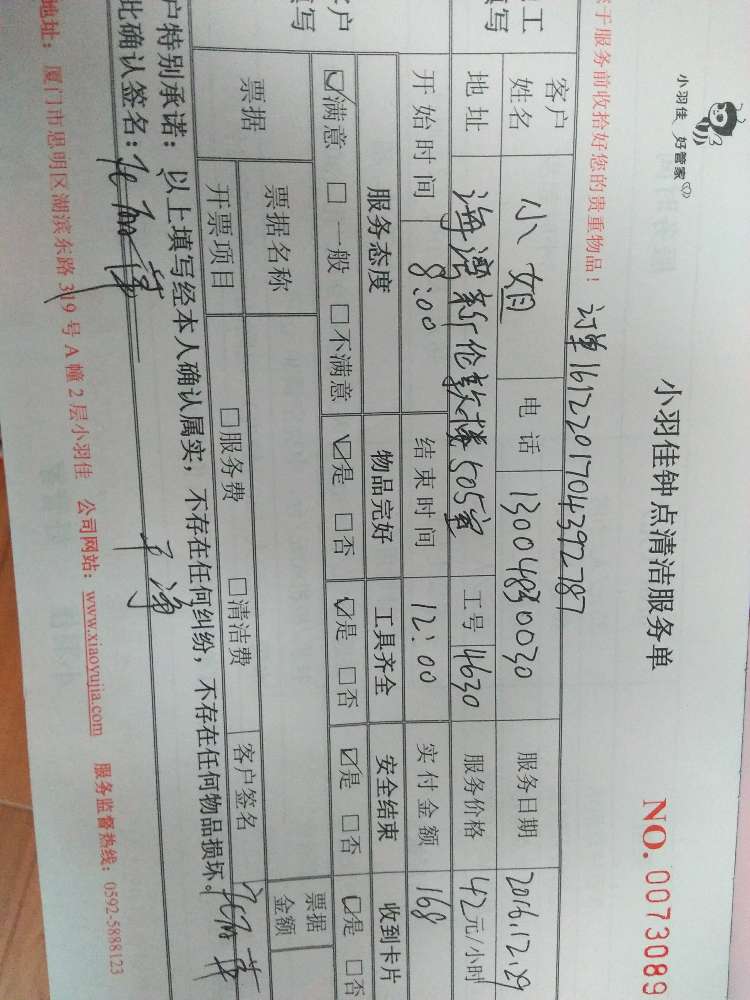 小羽佳 好管家
小羽佳钟点清洁服务单
NO. 0073089
于服务前收拾好您的贵重物品！ 订单161220170439278 7
工 客户姓名 小姐 电话 13004830030 服务日期 2016.12.29
写 地址 海沧新伦款楼505室 工号 4630 服务价格 42元/小时
开始时间 8:00 结束时间 12:00 实付金额 168
服务态度 物品完好 工具齐全 安全结束 收到卡片
户 ☑满意 □一般 □不满意 ☑是 □否 ☑是 □否 ☑是 □否 ☑是 □否
写 票据 票据名称 票据金额
开票项目 □服务费 □清洁费 客户签名
户特别承诺：以上填写经本人确认属实，不存在任何纠纷，不存在任何物品损坏。
此确认签名：
干净
地址：厦门市思明区湖滨东路319号A幢2层小羽佳 公司网站：www.xiaoyujia.com 服务监督热线：0592-5888123